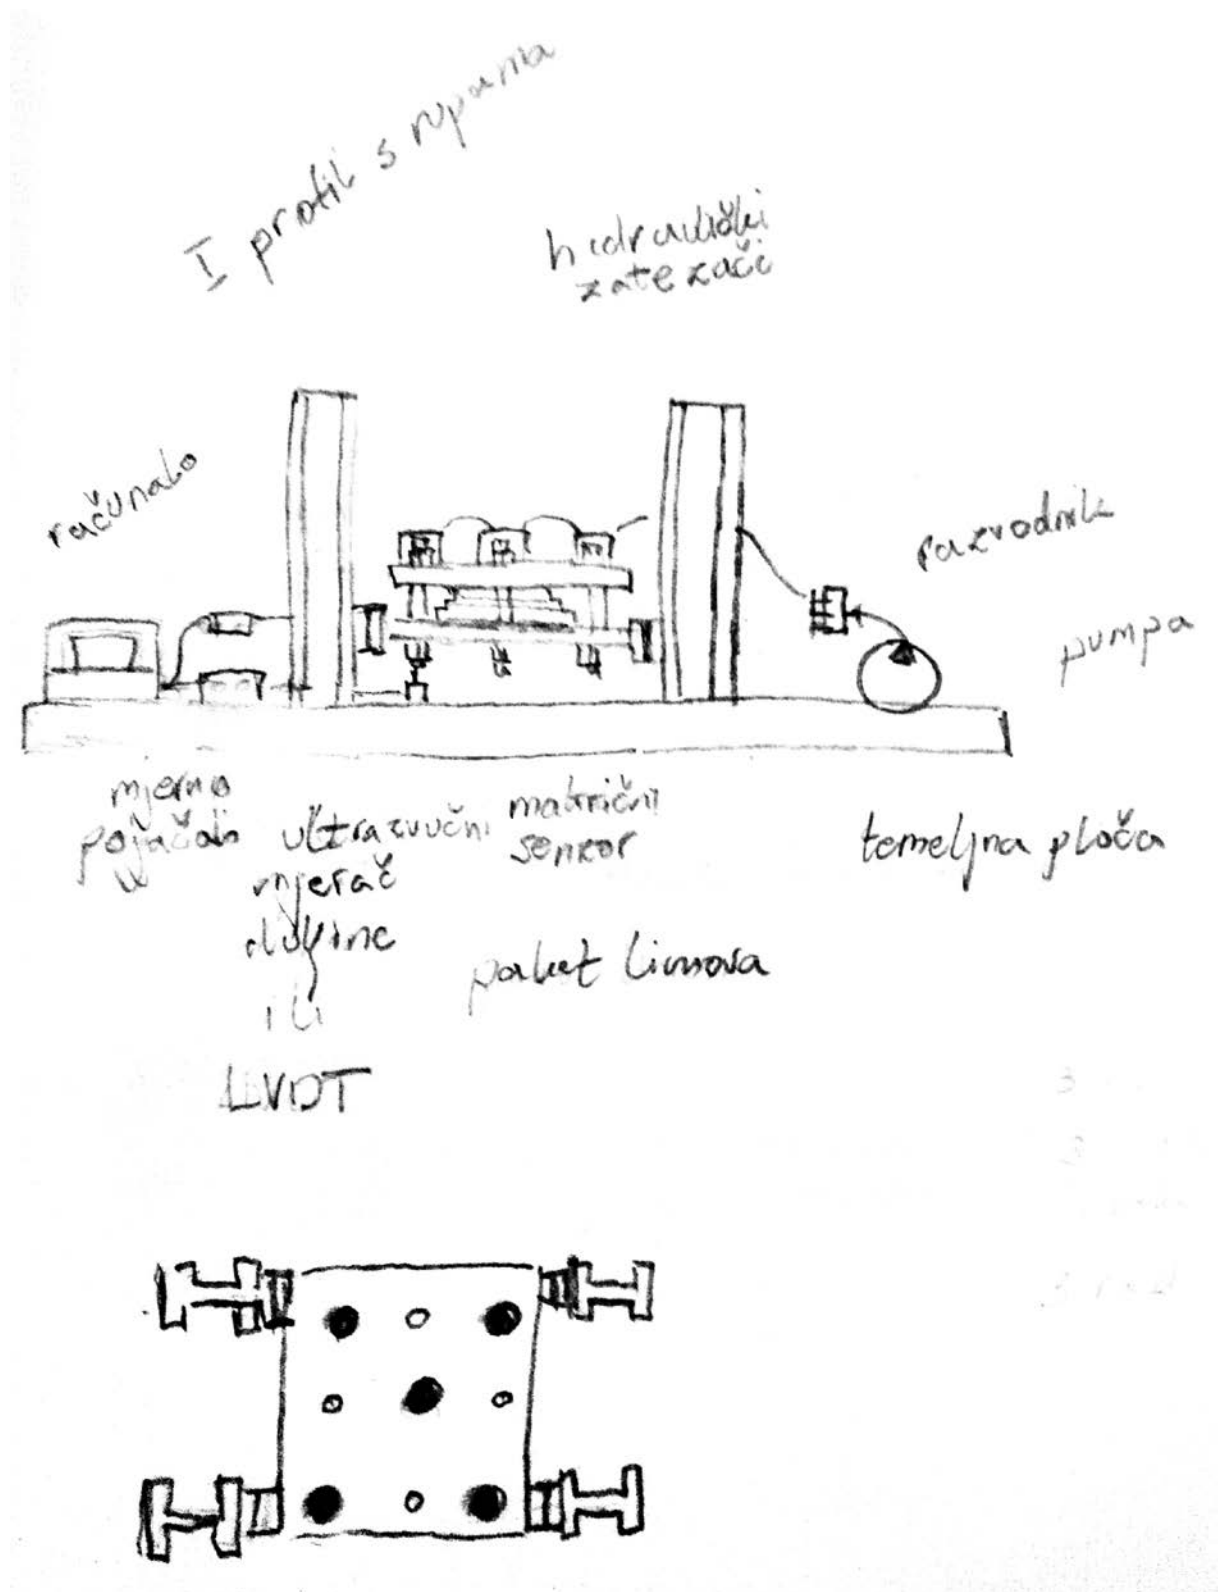 I profil s rupama
hidraulički
zatezači
računalo
razvodnik
pumpa
mjerno
pojačalo
ultrazvučni
mjerač
duljine
ili
LVDT
matrični
senzor
paket limova
temeljna ploča